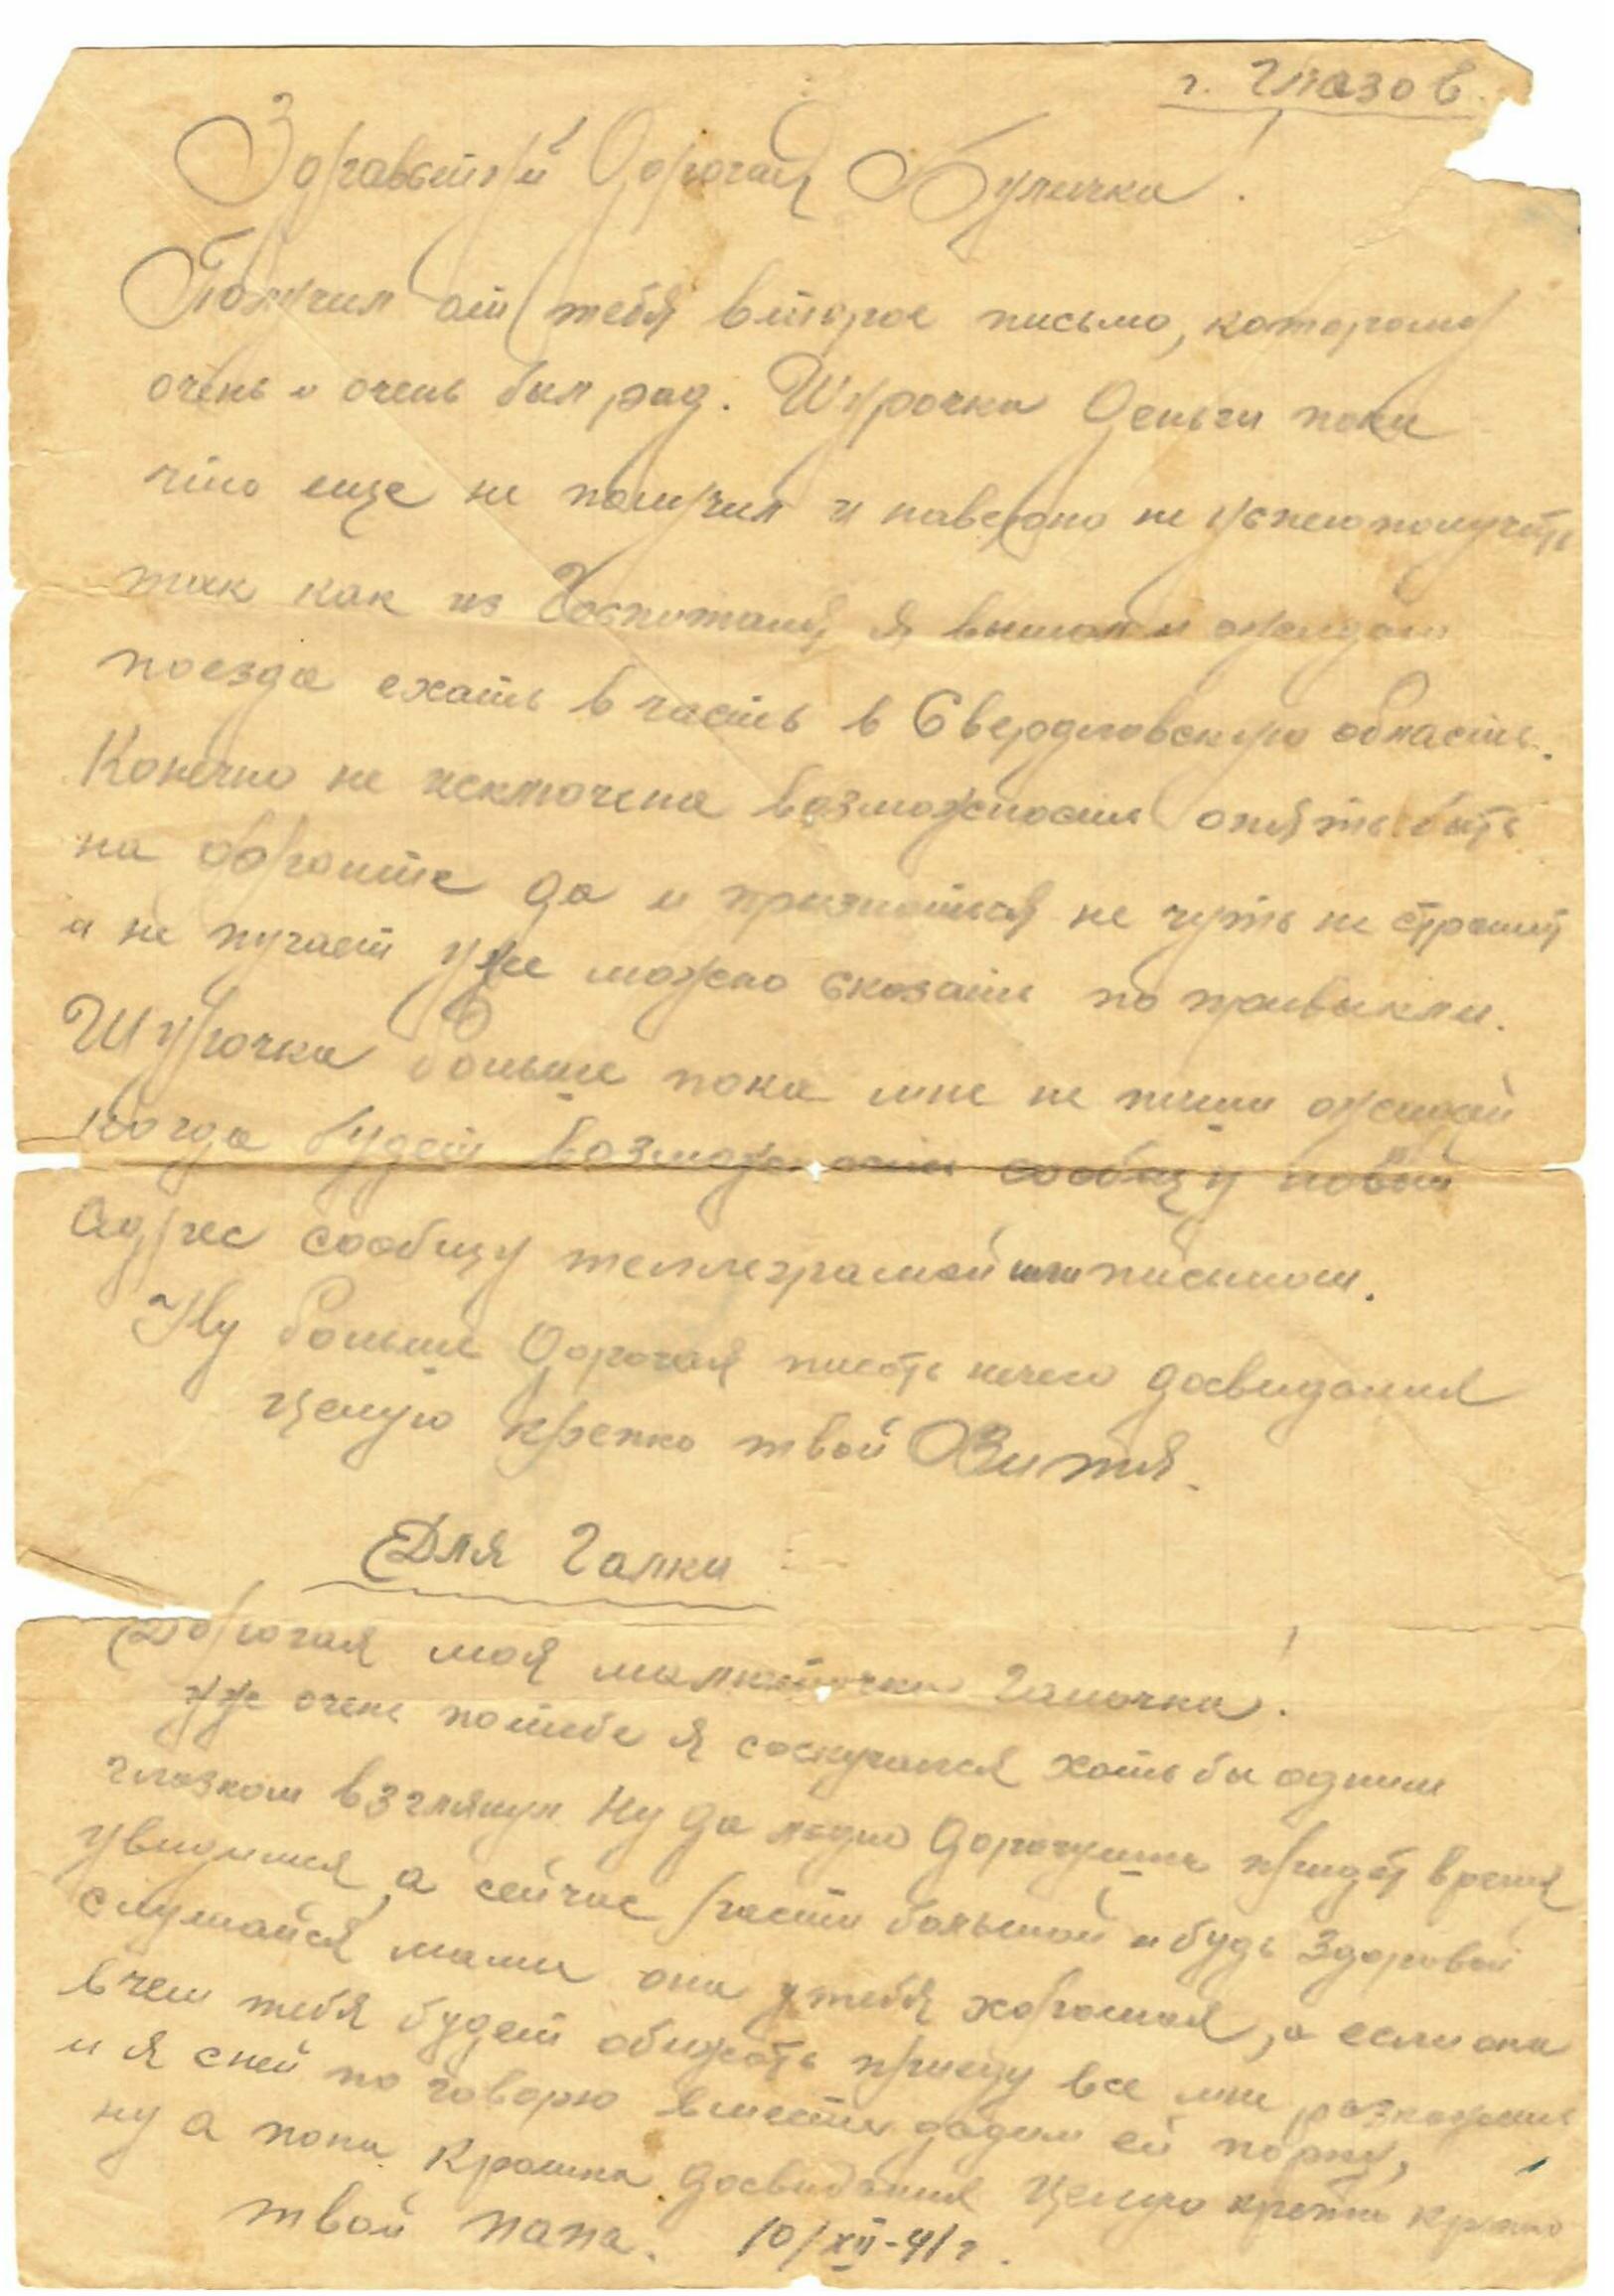 г. Глазов.
Здравствуй Дорогая Булечка!
Получил от тебя второе письмо, которому
очень и очень был рад. Шурочка Деньги пока
что еще не получил и наверно не успею получить
так как из Госпиталя я вышел и ожидаю
поезда ехать в часть в Свердловскую область.
Конечно не исключена возможность опять быть
на фронте да и признаться не чуть не страшит
и не пугает уже можно сказать по привыкли.
Шурочка больше пока мне не пиши ожидай
когда будет возможность сообщу новый
Адрес сообщу теллеграмой или письмом.
Ну больше Дорогая писать нечего досвидания
целую крепко твой Витя.
Для Галки
Дорогая моя малюточка Галочка!
уже очень по тебе я соскучался хоть бы одним
глазком взглянул Ну да ладно Дорогушечка придет время
увидимся, а сейчас расти большой и будь Здоровой
слушайся мами она у тебя хорошая, а если она
в чем тебя будет обижать приеду все мне розкажешь
и я с ней по говорю вместе дадим ей порку,
ну а пока Крошка досвидания Целую крепко крепко
твой папа. 10/XII-41 г.